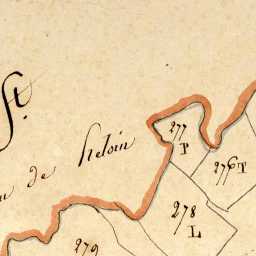 St.
de heloin
277
P
276 T
278
L
279